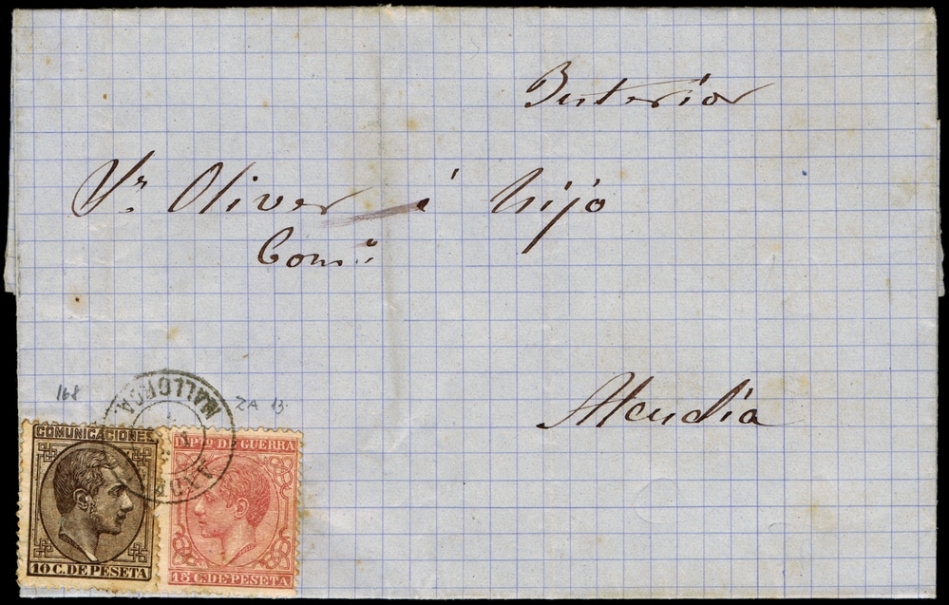 Interior
Sr. Oliver é hijo
Com.º
Alcudia
168
ZA 13
MALLORCA
COMUNICACIONES
10 C. DE PESETA
IMPTO DE GUERRA
15 C. DE PESETA